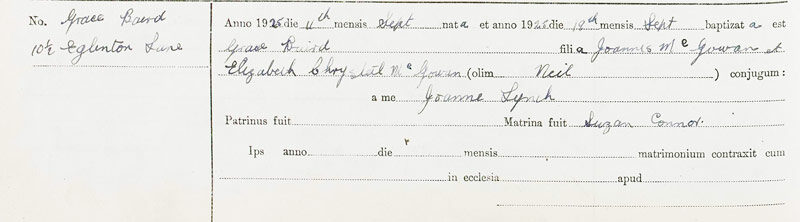 No. Grace Baird
10½ Eglinton Lane
Anno 1925 die 11th mensis Sept nata et anno 1925 die 19th mensis Sept baptizata est
Grace Baird filia Joannis Mc Gowan et
Elizabeth Chrystal Mc Gowan (olim Neil) conjugum:
a me Joanne Lynch
Patrinus fuit Matrina fuit Suzan Connor.
Ips anno die mensis matrimonium contraxit cum
in ecclesia apud